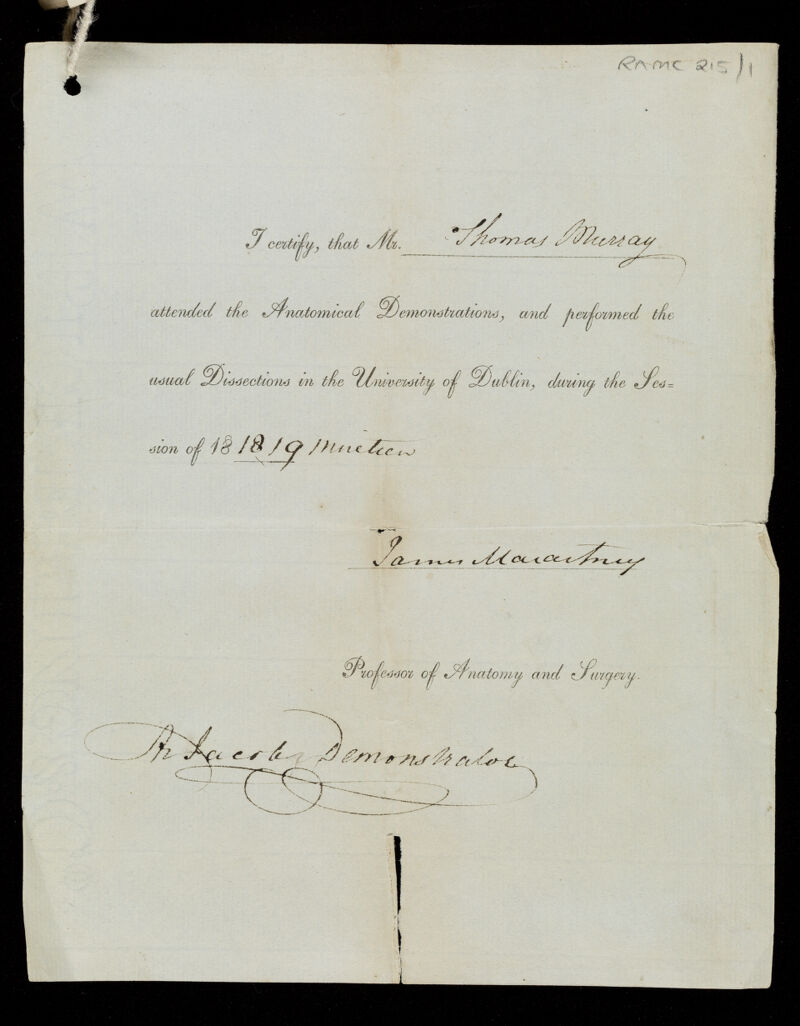 RAMC 215/1
I certify, that Mr. Thomas Murray
attended the Anatomical Demonstrations, and performed the
usual Dissections in the University of Dublin, during the Ses=
sion of 18 18 19 Nineteen
James Macartney
Professor of Anatomy and Surgery.
Ar Jacob Demonstrator